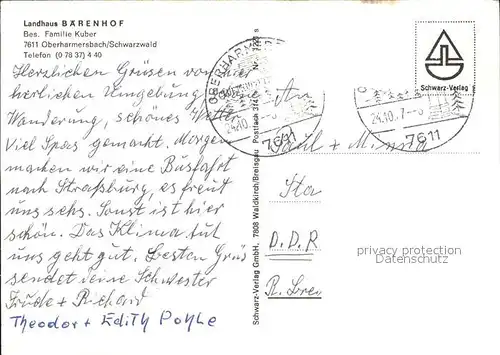 Landhaus BÄRENHOF
Bes. Familie Kuber
7611 Oberharmersbach/Schwarzwald
Telefon (0 78 37) 4 40
Herzlichen Grüsen von
herlichen Umgebung
Wanderung, schönes Wetter
Viel Spas gemacht. Morgen
machen wir eine Busfahrt
nach Straßburg, es freut
uns sehs. Sonst ist hier
schön. Das Klima tut
uns geht gut. Besten Grüs
sendet deine Schwester
Trude + Richard
Theodor + Edith Pohle
Schwarz-Verlag GmbH. 7808 Waldkirch/Breisgau Postfach 314
OBERHARMERSB
24.10.
7611
Schwarz-Verlag
24.10.7
7611
An
Paul + Minna
Sta
D.D.R
privacy protection
Datenschutz